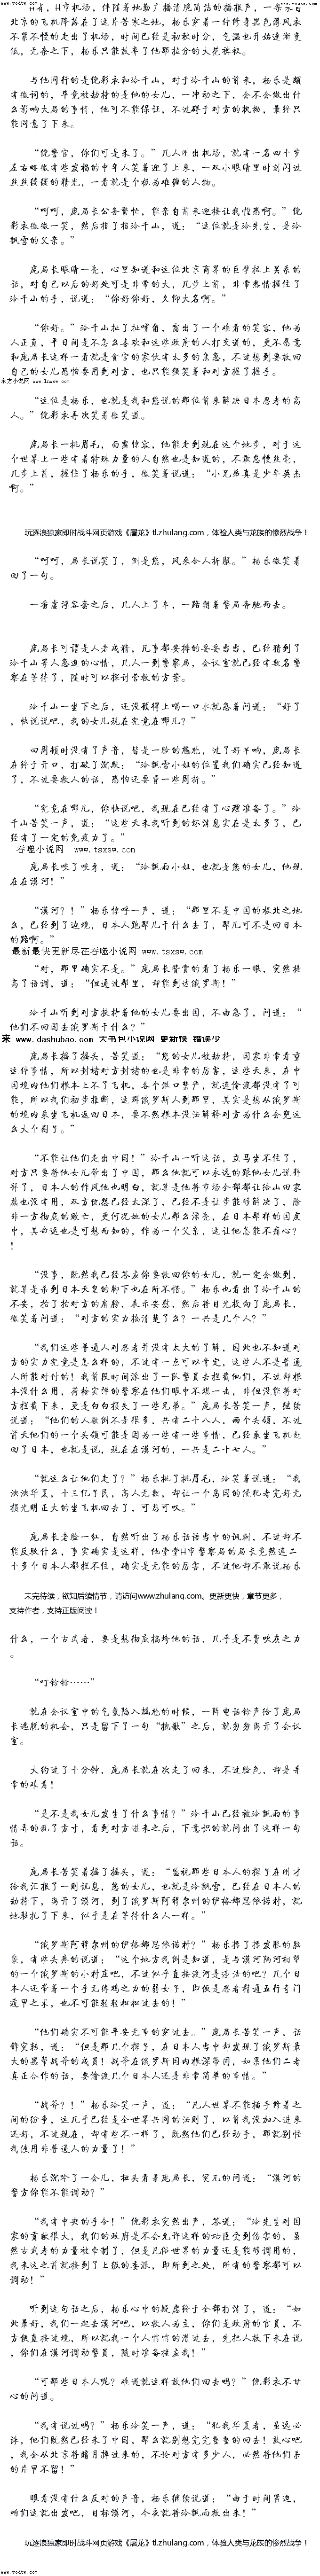 www.vodtw.com www.vodtw.com
H市，H市机场，伴随着她勤广播清脆简洁的播报声，一条来自
北京的飞机降落在了这片苦寒之地，杨乐穿着一件单薄黑色薄风衣
不紧不慢的走出了机场，时间已经是初秋时分，气温也开始逐渐变
低，无奈之下，杨乐只能放弃了他那拉分的大花裤衩。
与他同行的是倪彩衣和泠千山，对于泠千山的前来，杨乐是颇
有微词的，毕竟被劫持的是他的女儿，一冲动之下，会不会做出什
么影响大局的事情，他可不能保证，不过碍于对方的执拗，最终只
能同意了下来。
“倪警官，你们可是来了。”几人刚出机场，就有一名四十岁
左右略微有些发福的中年人笑着迎了上来，一双小眼睛里时刻闪过
丝丝缕缕的精光，一看就是个极为难缠的人物。
“呵呵，庞局长公务繁忙，能亲自前来迎接让我惶恐啊。”倪
彩衣微微一笑，然后指了指泠千山，道：“这位就是泠先生，是泠
飘雪的父亲。”
庞局长眼睛一亮，心里知道和这位北京商界的巨擘拉上关系的
话，对自己以后的好处可是非常的大，几步上前，非常热情握住了
泠千山的手，说道：“你好你好，久仰大名啊。”
“你好。”泠千山扯了扯嘴角，露出了一个难看的笑容，他为
人正直，平日间是不怎么喜欢和这些政府的人打交道的，更不愿意
和庞局长这样一看就是奸官的家伙有太多的焦急，不过想到要救回
自己的女儿恐怕要用到对方，也只能强笑着和对方握了握手。
东方小说网 www.lnwow.com
“这位是杨乐，也就是我和您说的那位前来解决日本忍者的高
人。”倪彩衣再次笑着微笑道。
庞局长一挑眉毛，面露惊容，他能走到现在这个地步，对于这
个世界上一些有着特殊力量的人自然也是知道的，不敢怠慢丝毫，
几步上前，握住了杨乐的手，微笑着说道：“小兄弟真是少年英杰
啊。”
玩逐浪独家即时战斗网页游戏《屠龙》tl.zhulang.com，体验人类与龙族的惨烈战争！
“呵呵，局长说笑了，倒是您，风采令人折服。”杨乐微笑着
回了一句。
一番虚浮客套之后，几人上了车，一路朝着警局奔驰而去。
庞局长可谓是人老成精，凡事都要掉的妥妥当当，已经猜到了
泠千山等人急迫的心情，几人一到警察局，会议室就已经有数名警
察在等待了，随时可以探讨营救的方案。
泠千山一坐下之后，还没顾得上喝一口水就急着问道：“好了
，快说说吧，我的女儿现在究竟在哪儿？”
四周顿时没有了声音，皆是一脸的尴尬，过了好半响，庞局长
在终于开口，打破了沉默：“泠飘雪小姐的位置我们确实已经知道
了，不过要救人的话，恐怕还要费一些周折。”
“究竟在哪儿，你快说吧，我现在已经有了心理准备了。”泠
千山苦笑一声，道：“这些天来我听到的坏消息实在是太多了，已
经有了一定的免疫力了。”
吞噬小说网 www.tsxsw.com
庞局长咬了咬牙，道：“泠飘雨小姐，也就是您的女儿，他现
在在漠河！”
“漠河？！”杨乐惊呼一声，道：“那里不是中国的极北之地
么，已经到了边境，日本人跑那儿干什么去了，那儿可不是回日本
的路啊。”
最新最快更新尽在吞噬小说网 www.tsxsw.com
“对，那里确实不是。”庞局长赞赏的看了杨乐一眼，突然提
高了语调，道：“但通过那里，却能到达俄罗斯！”
泠千山听到对方挟持着他的女儿要出国，不由急了，问道：“
他们不回国去俄罗斯干什么？”
来 www.dashubao.com 大书包小说网 更新快 错误少
庞局长摇了摇头，苦笑道：“您的女儿被劫持，国家非常看重
这件事情，所以封堵对方封堵的也是非常的厉害，这些天来，在中
国境内他们根本上不了飞机，各个渡口禁严，就连偷渡都没有了可
能，所以我们初步推断，这群俄罗斯人到那里，其实是想从俄罗斯
的境内乘坐飞机返回日本，要不然根本没法解释对方为什么会兜这
么大个圈子。”
“不能让他们走出中国！”泠千山一听这话，立马坐不住了，
对方只要将他女儿带出了中国，那么他就可以永远的跟他女儿说拜
拜了，日本人的作风他也明白，就算是他将市场全部都让给山田家
族也没有用，双方恍怨已经太深了，已经不是让步能够解决了，除
非一方彻底的败亡，更何况她的女儿那么漂亮，在日本那样的国度
中，其命运也是可想而知的，作为一个父亲，这让他怎能不痛心？
！
“没事，既然我已经答应你要救回你的女儿，就一定会做到，
就算是杀到日本天皇的胸下也在所不惜。”杨乐也看出了泠千山的
不安，拍了拍对方的肩膀，表示安慰，然后将目光投向了庞局长，
微笑着问道：“对方的实力搞清楚了么？一共是几个人？”
“我们这些普通人对忍者并没有太大的了解，因此也不知道对
方的实力究竟是怎么样的，不过有一点可以肯定，这些人不是普通
人所能对付的！我前段时间派出了一队警员去拦截他们，不过却根
本没什么用，荷枪实弹的警察在他们眼中不堪一击，非但没能将对
方拦截下来，更是白白损失了一些兄弟。”庞局长苦笑一声，继续
说道：“他们的人数倒不是很多，共有二十八人，两个头领，不过
前天他们的一个头领可能是因为一些有一些事情，已经乘坐飞机赴
回了日本，也就是说，现在在漠河的，一共是二十七人。”
“就这么让他们走了？”杨乐挑了挑眉毛，泠笑着说道：“我
泱泱华夏，十三亿子民，高人无数，却让一个岛国的侵犯者完好无
损光明正大的坐飞机回去了，可悲可叹。”
庞局长老脸一红，自然听出了杨乐话语当中的讽刺，不过却不
能反驳什么，事实确实是这样，他堂堂H市警察局的局长竟然连二
十多个日本人都拦不住，确实是无能的厉害，不过他却不敢说杨乐
未完待续，欲知后续情节，请访问www.zhulang.com。更新更快，章节更多，
支持作者，支持正版阅读！
什么，一个古武者，要是想彻底搞垮他的话，几乎是不费吹灰之力
。
“叮铃铃……”
就在会议室中的气氛陷入尴尬的时候，一阵电话铃声给了庞局
长逃脱的机会，只是留下了一句“抱歉”之后，就匆匆离开了会议
室。
大约过了十分钟，庞局长就在次走了回来，不过脸色，却是异
常的难看！
“是不是我女儿发生了什么事情？”泠千山已经被泠飘雨的事
情弄的乱了方寸，看到对方进来之后，下意识的就问出了这样一句
话。
庞局长苦笑着摇了摇头，道：“监视那些日本人的探子在刚才
给我汇报了一则讯息，您的女儿，也就是泠飘雪，已经在日本人的
劫持下，离开了漠河，到了俄罗斯阿穆尔州的伊格娜思依诺村，就
地驻扎了下来，似乎是在等待什么人一样。”
“俄罗斯阿穆尔州的伊格娜思依诺村？”杨乐揉了揉发胀的脑
袋，有些头疼的说道：“这个地方我倒是知道，是与漠河隔河相望
的一个俄罗斯的小村庄吧，不过似乎直接渡河是违法的吧？几个日
本人还带着一个手无缚鸡之力的弱女子，即便是忍者精通五行奇门
遁甲之术，也不可能轻轻松松过去的！”
“他们确实不可能平安无事的穿过去。”庞局长苦笑一声，话
锋突转，道：“但是那几个探子，在日本人当中却发现了俄罗斯最
大的黑帮战斧的成员！战斧在俄罗斯国内根深蒂固，如果他们二者
真正合作的话，要偷渡几个日本人还是非常简单的事情。”
“战斧？！”杨乐泠笑一声，道：“凡人世界不能插手修者之
间的纷争，这几乎已经是全世界共同的法则了，以前我没加入进来
还好，不过现在，却有些不一样了，既然他们已经动手，那就别怪
我使用非普通人的力量了！”
杨乐沉吟了一会儿，扭头看着庞局长，突兀的问道：“漠河的
警方你能不能调动？”
“我有中央的手令！”倪彩衣突然出声，答道：“泠先生对国
家的贡献很大，我们的政府是不会允许这样的功臣受到伤害的，虽
然古武者的力量被牵制了，但是凡俗世界的力量还是能够调用的，
我来这之前就接到了上级的委派，即所到之处，所有的警察都可以
调动！”
听到这句话之后，杨乐心中的疑虑终于全部打消了，道：“如
此最好，我们一起去漠河吧，以救人为主，你们是政府的官员，不
方便直接过境，所以就我一个人悄悄的潜过去，先把人救下来在说
，你们在漠河调动警员，随时准备接应我！”
“可那些日本人呢？难道就这样放他们回去吗？”倪彩衣不甘
心的问道。
“我有说过吗？”杨乐泠笑一声，道：“犯我华夏者，虽远必
诛，他们既然已经来了中国，那么就别想完完整整的回去！放心吧
，我会从北京将暗月掉过来的，不论对方有多少人，必然将他们杀
的片甲不留！”
眼看没有什么反对的声音，杨乐继续说道：“由于时间紧迫，
咱们这就出发吧，目标漠河，今夜就将泠飘雨救出来！”
玩逐浪独家即时战斗网页游戏《屠龙》tl.zhulang.com，体验人类与龙族的惨烈战争！
www.vodtw.com www.vodtw.com